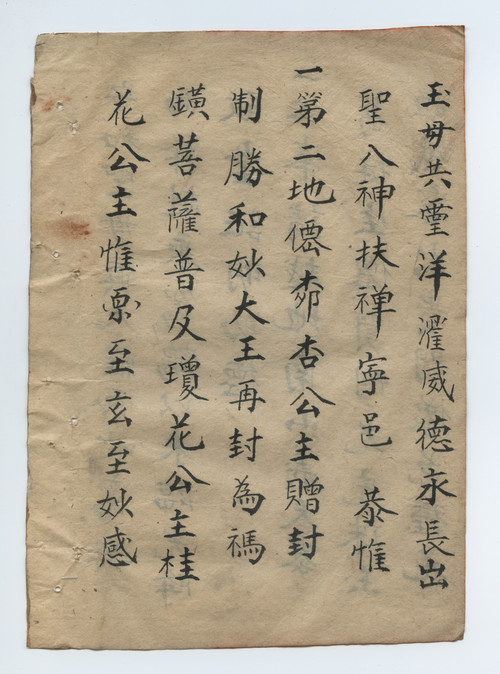 玉母共靈洋濯威德永長出
聖八神扶禅寧邑 恭惟
一第二地僊柳杏公主贈封
制勝和妙大王再封為禡
鐄菩薩普及瓊花公主桂
花公主惟灵至玄至妙感